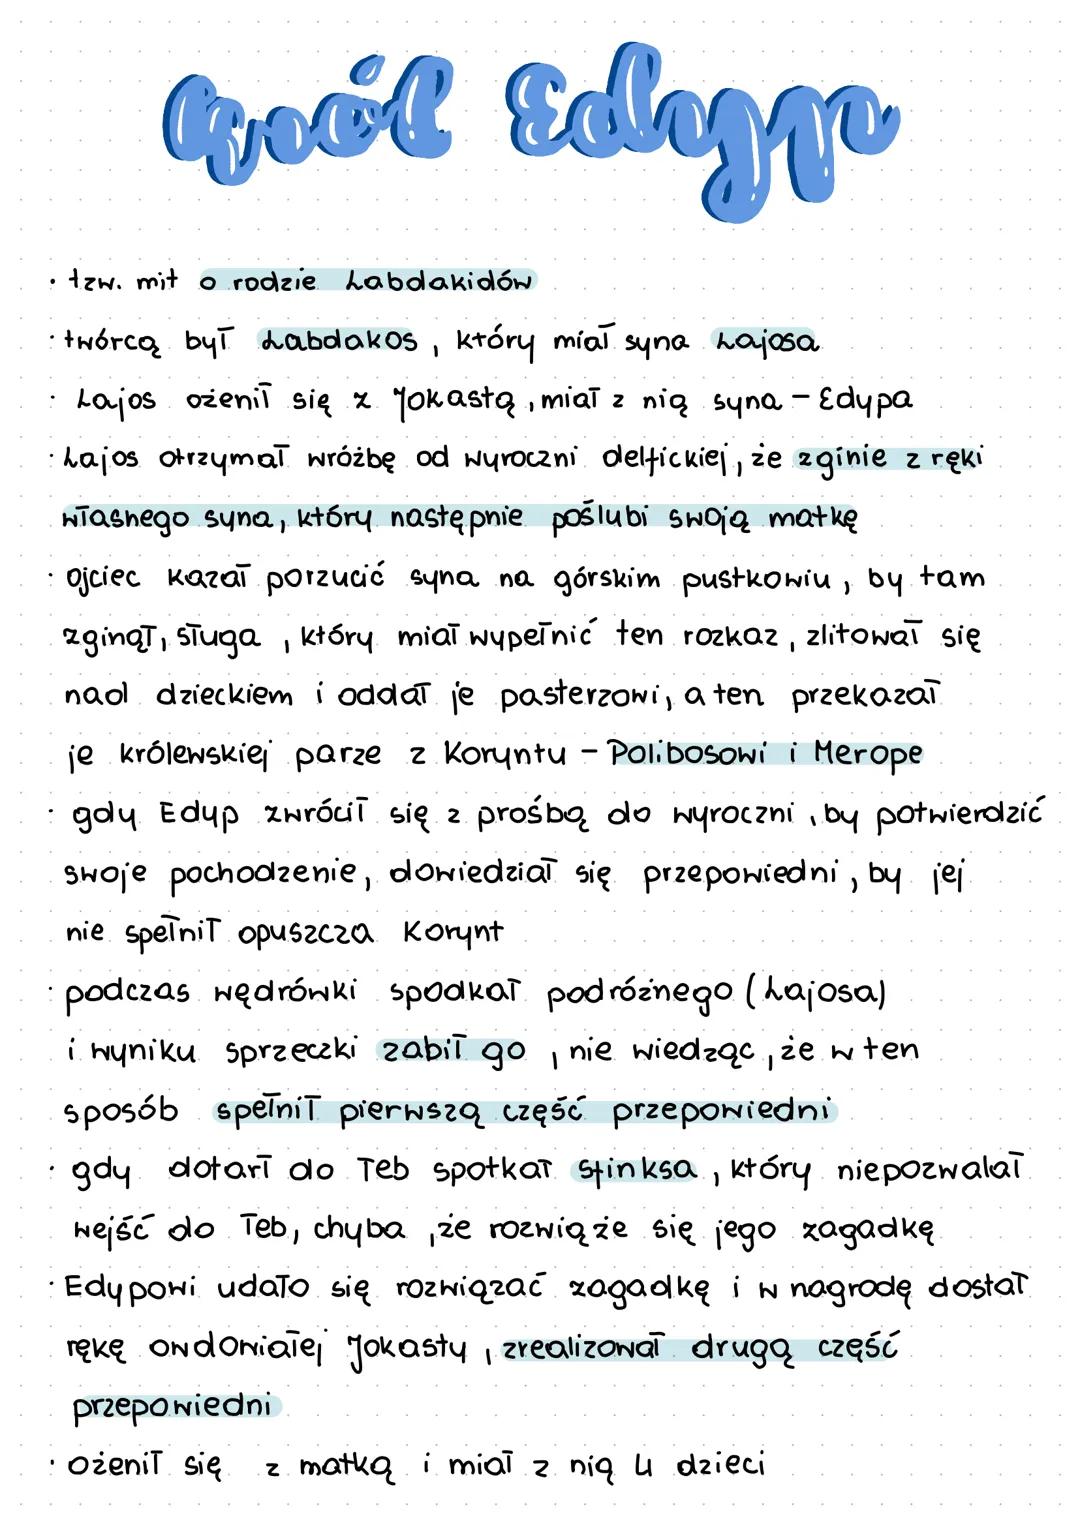 Król Edyp
· tzw. mit o rodzie Labdakidów
· twórcą był Labdakos, który miał syna Lajosa
· Lajos ożenił się z Jokastą, miał z nią syna - Edypa
· Lajos otrzymał wróżbę od wyroczni delfickiej, że zginie z ręki
własnego syna, który następnie poślubi swoją matkę
· ojciec kazał porzucić syna na górskim pustkowiu, by tam
zginął, sługa, który miał wypełnić ten rozkaz, zlitował się
nad dzieckiem i oddał je pasterzowi, a ten przekazał
je królewskiej parze z Koryntu - Polibosowi i Merope
· gdy Edyp zwrócił się z prośbą do wyroczni, by potwierdzić
swoje pochodzenie, dowiedział się przepowiedni, by jej
nie spełnił opuszcza Korynt
· podczas wędrówki spodkał podróżnego (Lajosa)
i wyniku sprzeczki zabił go, nie wiedząc, że w ten
sposób spełnił pierwszą część przepowiedni
· gdy dotarł do Teb spotkał Sfinksa, który niepozwalał
wejść do Teb, chyba, że rozwiąże się jego zagadkę
· Edypowi udało się rozwiązać zagadkę i w nagrodę dostał
rękę owdowiałej Jokasty, zrealizował drugą część
przepowiedni
· ożenił się z matką i miał z nią 4 dzieci